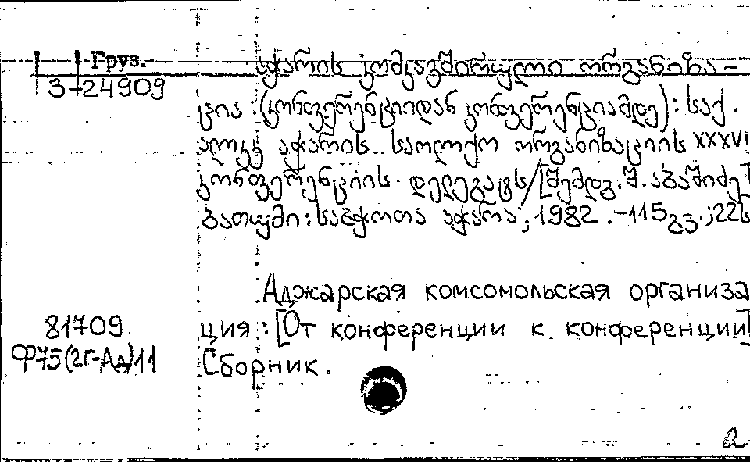 Груз.
აჭარის კომკავშირული ორგანიზა-
3-24909
ცია (კონფერენციიდან კონფერენციამდე): საქ.
ალკკ აჭარის საოლქო ორგანიზაციის XXXVI
კონფერენციის დელეგატს/[შემდგ. შ. აბაშიძე]
ბათუმი: საბჭოთა აჭარა, 1982.-115გვ.; 22ს
Аджарская комсомольская организа
81709
ция: [От конференции к конференции]
Ф75(2Г-Ад)11
Сборник.